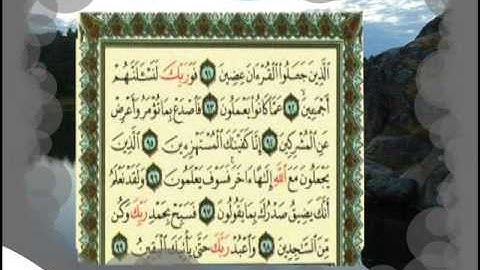 الَّذِينَ جَعَلُوا الْقُرْءَانَ عِضِينَ ٩١ فَوَرَبِّكَ لَنَسْـَٔلَنَّهُمْ
أَجْمَعِينَ ٩٢ عَمَّا كَانُوا يَعْمَلُونَ ٩٣ فَاصْدَعْ بِمَا تُؤْمَرُ وَأَعْرِضْ
عَنِ الْمُشْرِكِينَ ٩٤ إِنَّا كَفَيْنَاكَ الْمُسْتَهْزِءِينَ ٩٥ الَّذِينَ
يَجْعَلُونَ مَعَ اللَّهِ إِلَٰهًا ءَاخَرَ فَسَوْفَ يَعْلَمُونَ ٩٦ وَلَقَدْ نَعْلَمُ
أَنَّكَ يَضِيقُ صَدْرُكَ بِمَا يَقُولُونَ ٩٧ فَسَبِّحْ بِحَمْدِ رَبِّكَ وَكُن
مِّنَ السَّاجِدِينَ ٩٨ وَاعْبُدْ رَبَّكَ حَتَّىٰ يَأْتِيَكَ الْيَقِينُ ٩٩